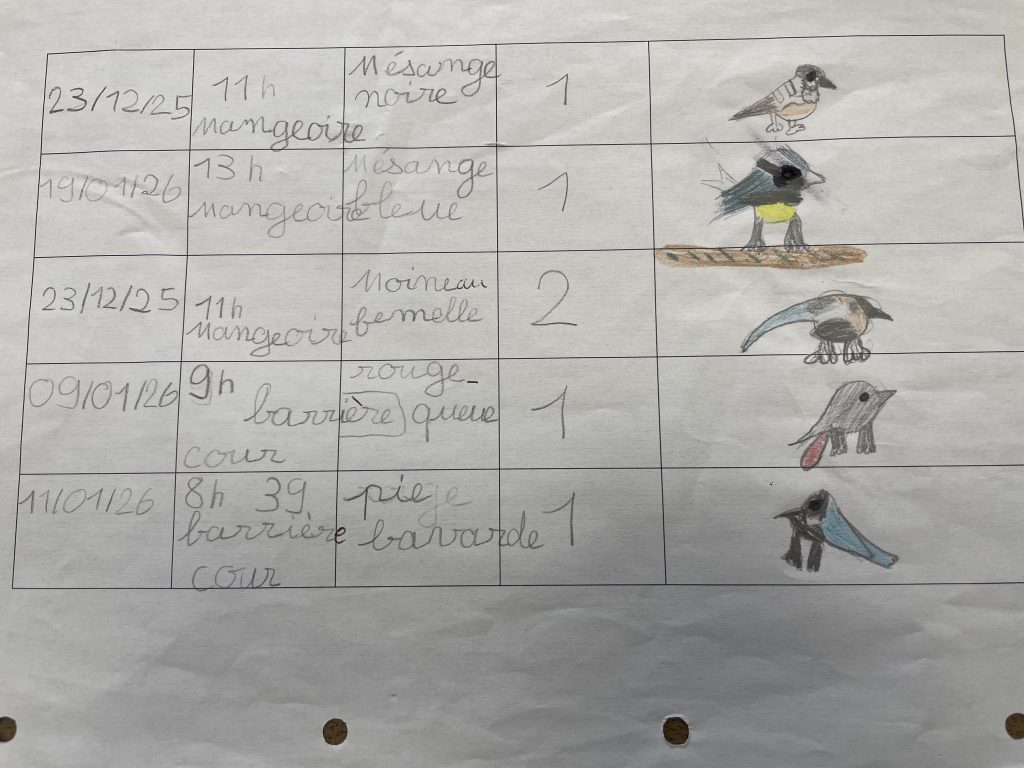 23/12/25 11h Mésange 1
mangeoire noire
19/01/26 13 h Mésange 1
mangeoire bleue
23/12/25 11h Moineau 2
mangeoire femelle
09/01/26 9h rouge- 1
barrière queue
cour
11/01/26 8h 39 pie 1
barrière bavarde
cour